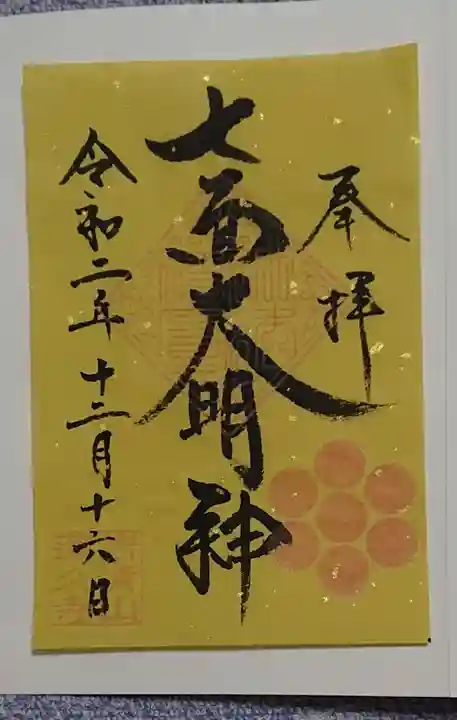 奉拝
七面大明神
令和二年十二月十六日